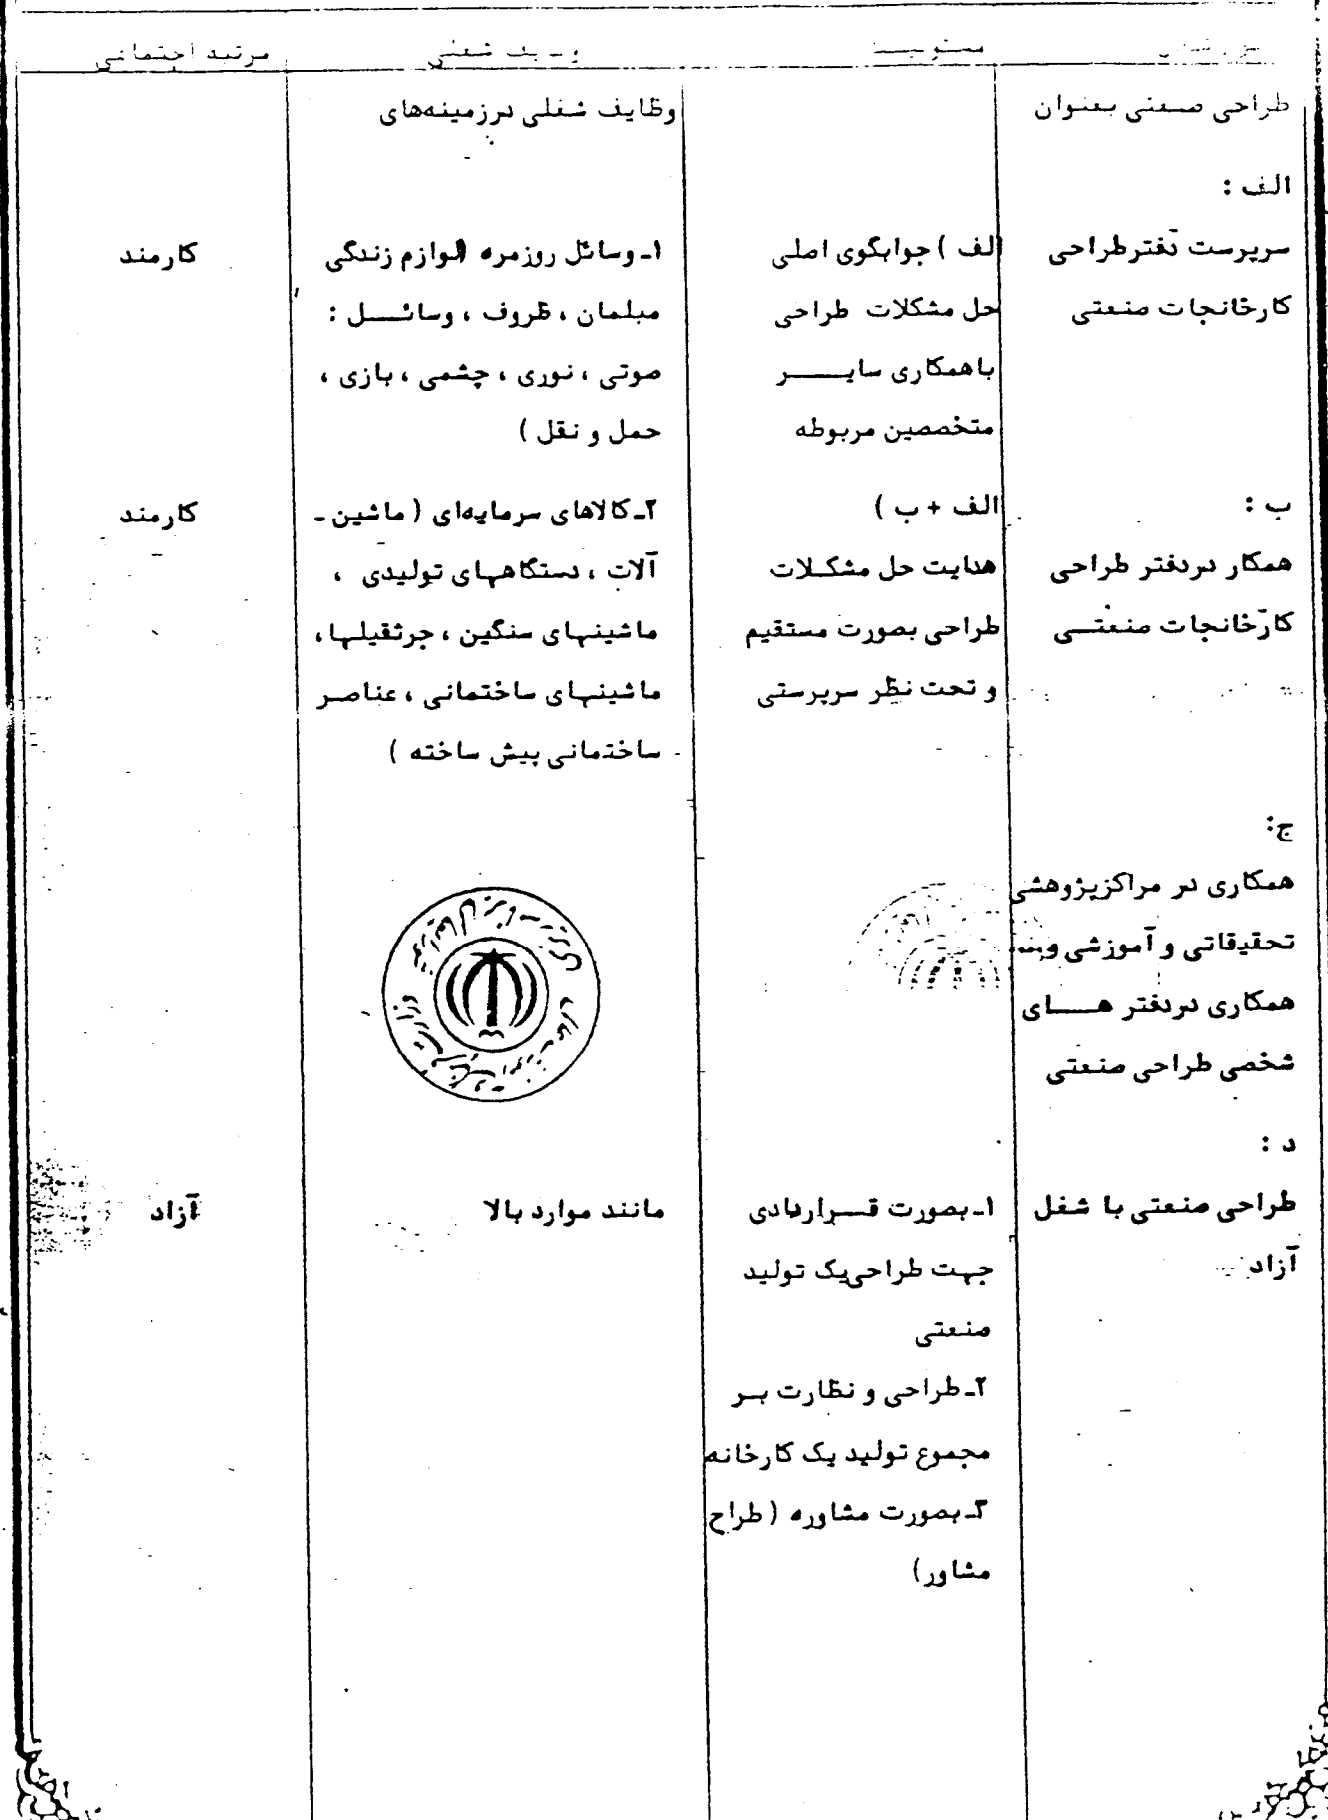 وظایف شغلی مرتبه اجتماعی
طراحی صنعتی بعنوان
وظایف شغلی درزمینه‌های
الف :
سرپرست دفترطراحی
کارخانجات صنعتی
الف ) جوابگوی اصلی
حل مشکلات طراحی
باهمکاری سایر
متخصصین مربوطه
۱ـ وسائل روزمره (لوازم زندگی
مبلمان ، ظروف ، وسائل :
صوتی ، نوری ، چشمی ، بازی ،
حمل و نقل )
کارمند
ب :
همکار دردفتر طراحی
کارخانجات صنعتی
الف + ب )
هدایت حل مشکلات
طراحی بصورت مستقیم
و تحت نظر سرپرستی
۲ـ کالاهای سرمایه‌ای ( ماشین ـ
آلات ، دستگاههای تولیدی ،
ماشینهای سنگین ، جرثقیلها ،
ماشینهای ساختمانی ، عناصر
ساختمانی پیش ساخته )
کارمند
ج:
همکاری در مراکزپژوهشی
تحقیقاتی و آموزشی و
همکاری دردفتر های
شخصی طراحی صنعتی
د :
طراحی صنعتی با شغل
آزاد
۱ـ بصورت قراردادی
جهت طراحی‌یک تولید
صنعتی
۲ـ طراحی و نظارت بر
مجموع تولید یک کارخانه
۳ـ بصورت مشاوره ( طراح
مشاور)
مانند موارد بالا
آزاد